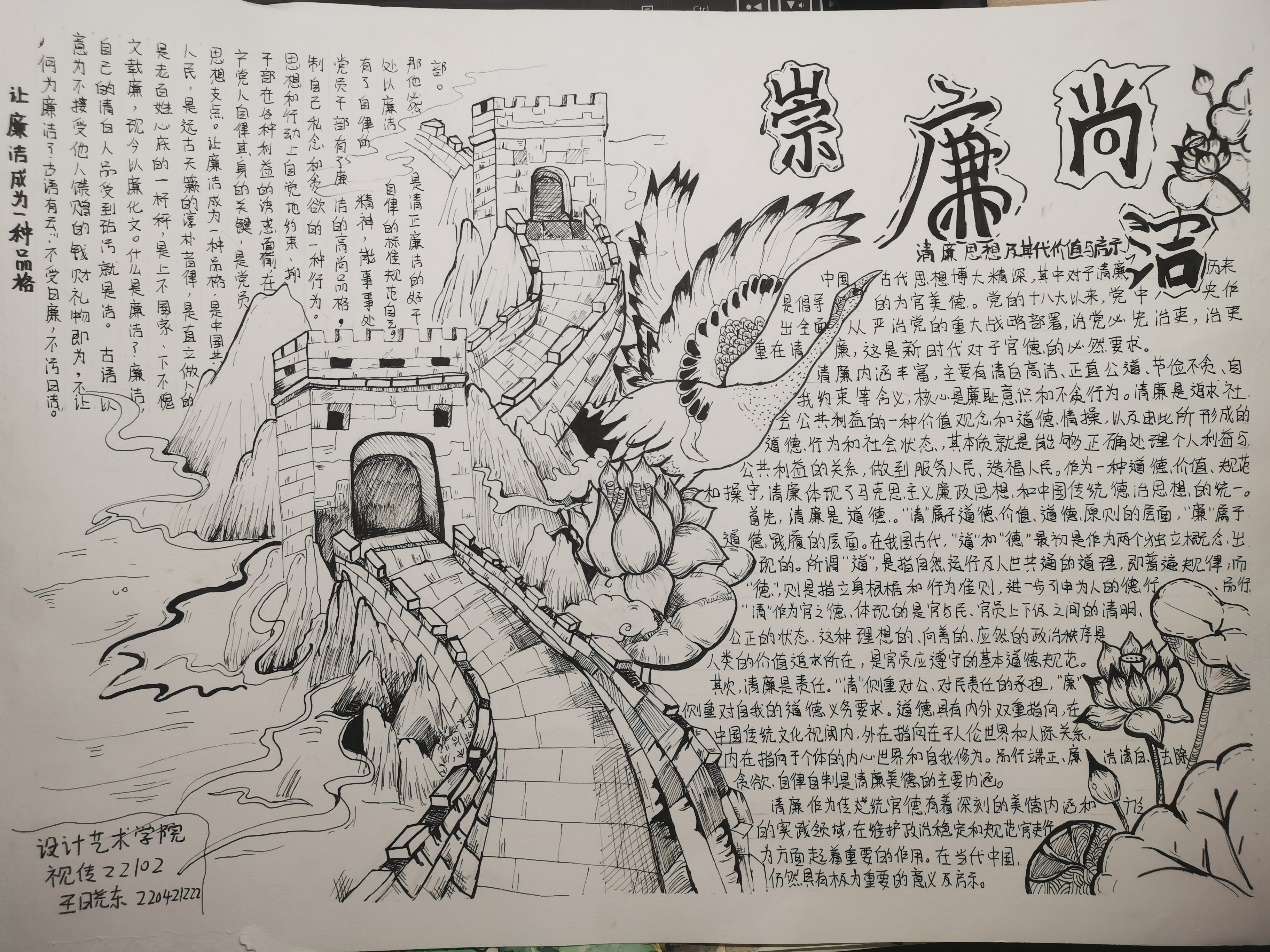 崇廉尚洁
清廉思想及其代价值与启示
中国古代思想博大精深,其中对于清廉 历来
是倡导 的为官美德。党的十八大以来,党中央作
出全面从严治党的重大战略部署,治党必先治吏,治吏
重在清廉,这是新时代对于官德的必然要求。
清廉内涵丰富,主要有清白高洁、正直公道、节俭不贪、自
我约束等含义,核心是廉耻意识和不贪行为。清廉是追求社
会公共利益的一种价值观念和道德情操,以及由此所形成的
道德行为和社会状态,其本质就是能够正确处理个人利益与
公共利益的关系,做到服务人民、造福人民。作为一种道德价值、规范
和操守,清廉体现了马克思主义廉政思想和中国传统德治思想的统一。
首先,清廉是道德。“清”属于道德价值、道德原则的层面,“廉”属于
道德践履的层面。在我国古代,“道”和“德”最初是作为两个独立概念出
现的。所谓“道”,是指自然运行及人世共通的道理,即普遍规律;而
“德”,则是指立身根据和行为准则,进一步引申为人的德行 品行
“清”作为官之德,体现的是官与民、官员上下级之间的清明、
公正的状态,这种理想的、向善的、应然的政治秩序是
人类的价值追求所在,是官员应遵守的基本道德规范。
其次,清廉是责任。“清”侧重对公、对民责任的承担,“廉”
侧重对自我的道德义务要求。道德具有内外双重指向,在
中国传统文化视阈内,外在指向在于人伦世界和人际关系,
内在指向于个体的内心世界和自我修为。品行端正、廉洁清白、去除
贪欲、自律自制是清廉美德的主要内涵。
清廉作为传统官德,有着深刻的美德内涵和
的实践领域,在维护政治稳定和规范官吏作
为方面起着重要的作用。在当代中国,
仍然具有极为重要的意义及启示。
让廉洁成为一种品格
何为廉洁?古语有云:不受曰廉,不污曰洁。
意为不接受他人馈赠的钱财礼物即为,不让
自己的清白人品受到玷污就是洁。古语以
文载廉,现今以廉化文。什么是廉洁?廉洁,
是老百姓心底的一杆秤,是上不 国家、下不愧
人民,是远古天 的淳朴旨律,是直立做人的
思想支点。让廉洁成为一种品格,是中国共
产党人自律其身的关键,是党员
干部在各种利益的诱惑面前,在
思想和行动上自觉地约束、抑
制自己私念和贪欲的一种行为。
党员干部有了廉洁的高尚品格,
有了自律的 精神,做事事处
处以廉洁 自律的标准规范自己,
那他必 是清正廉洁的好干
部。
设计艺术学院
视传22102
王晓东 220421222